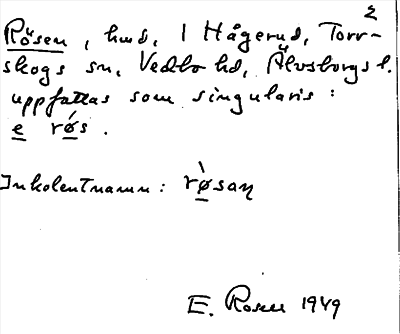 2
Rösen, hmd, i Hågerud, Torr-
skogs sn, Vedbo hd, Älvsborgs l.
uppfattas som singularis:
e rǿs.
Inkolentnamn: rø̀saɳ
E. Rosen 1949